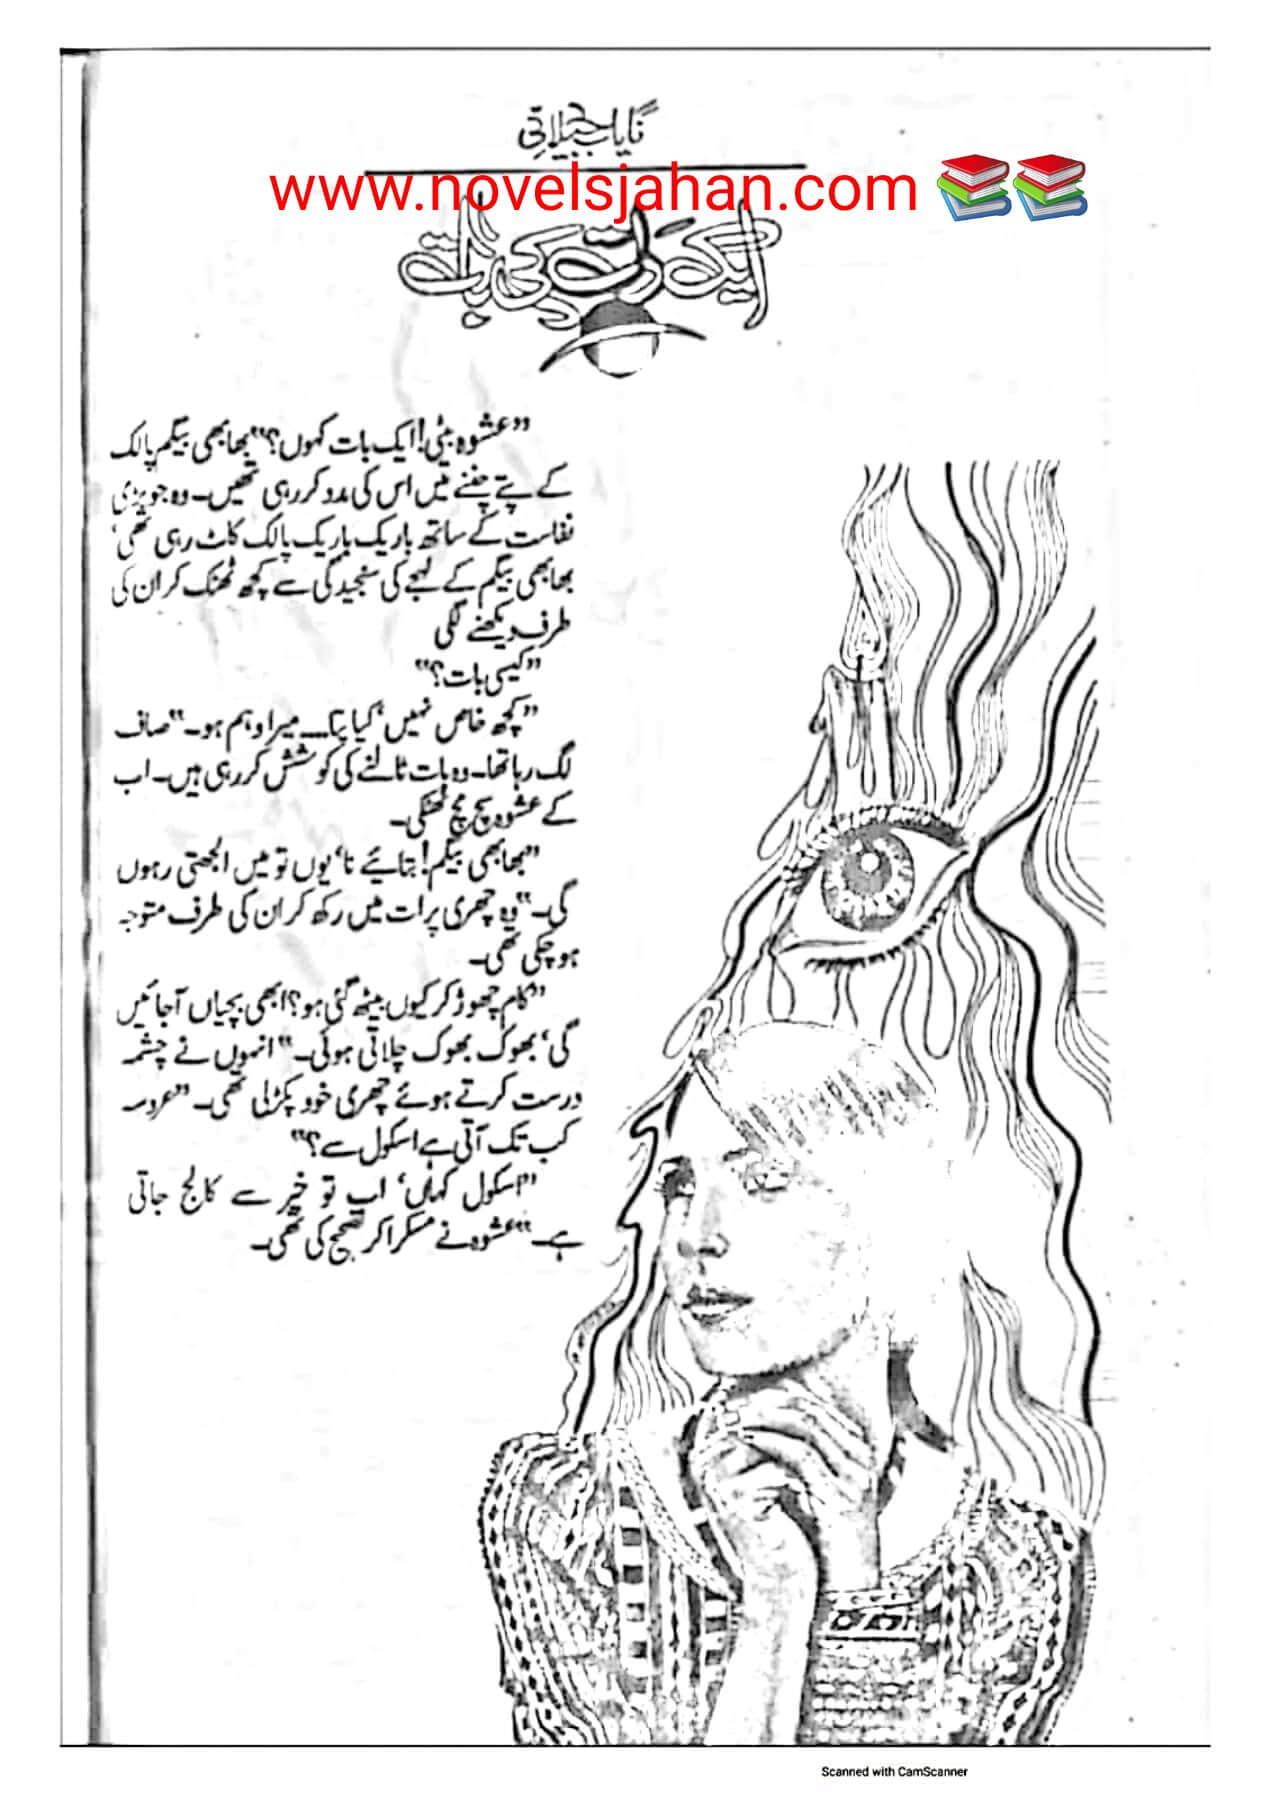 نایاب جیلانی
www.novelsjahan.com
ایک رات کی بات
”عشوہ بیٹی! ایک بات کہوں؟“ بھابھی بیگم پالک
کے پتے چننے میں اس کی مدد کر رہی تھیں۔ وہ جو بڑی
نفاست کے ساتھ باریک باریک پالک کاٹ رہی تھی‘
بھابھی بیگم کے لہجے کی سنجیدگی سے کچھ ٹھٹک کر ان کی
طرف دیکھنے لگی
”کیسی بات؟“
”کچھ خاص نہیں‘ کیا پتا۔۔۔ میرا وہم ہو۔“ صاف
لگ رہا تھا۔ وہ بات ٹالنے کی کوشش کر رہی ہیں۔ اب
کے عشوہ سچ مچ ٹھٹکی۔
”بھابھی بیگم! بتائیے نا‘ یوں تو میں الجھتی رہوں
گی۔“ وہ چھری پرات میں رکھ کر ان کی طرف متوجہ
ہو چکی تھی۔
”کام چھوڑ کر کیوں بیٹھ گئی ہو؟ ابھی بچیاں آجائیں
گی‘ بھوک بھوک چلاتی ہوئی۔“ انہوں نے چشمہ
درست کرتے ہوئے چھری خود پکڑلی تھی۔ ”عروسہ
کب تک آتی ہے اسکول سے؟“
”اسکول کہاں‘ اب تو خیر سے کالج جاتی
ہے۔“ عشوہ نے مسکرا کر تصحیح کی تھی۔
Scanned with CamScanner